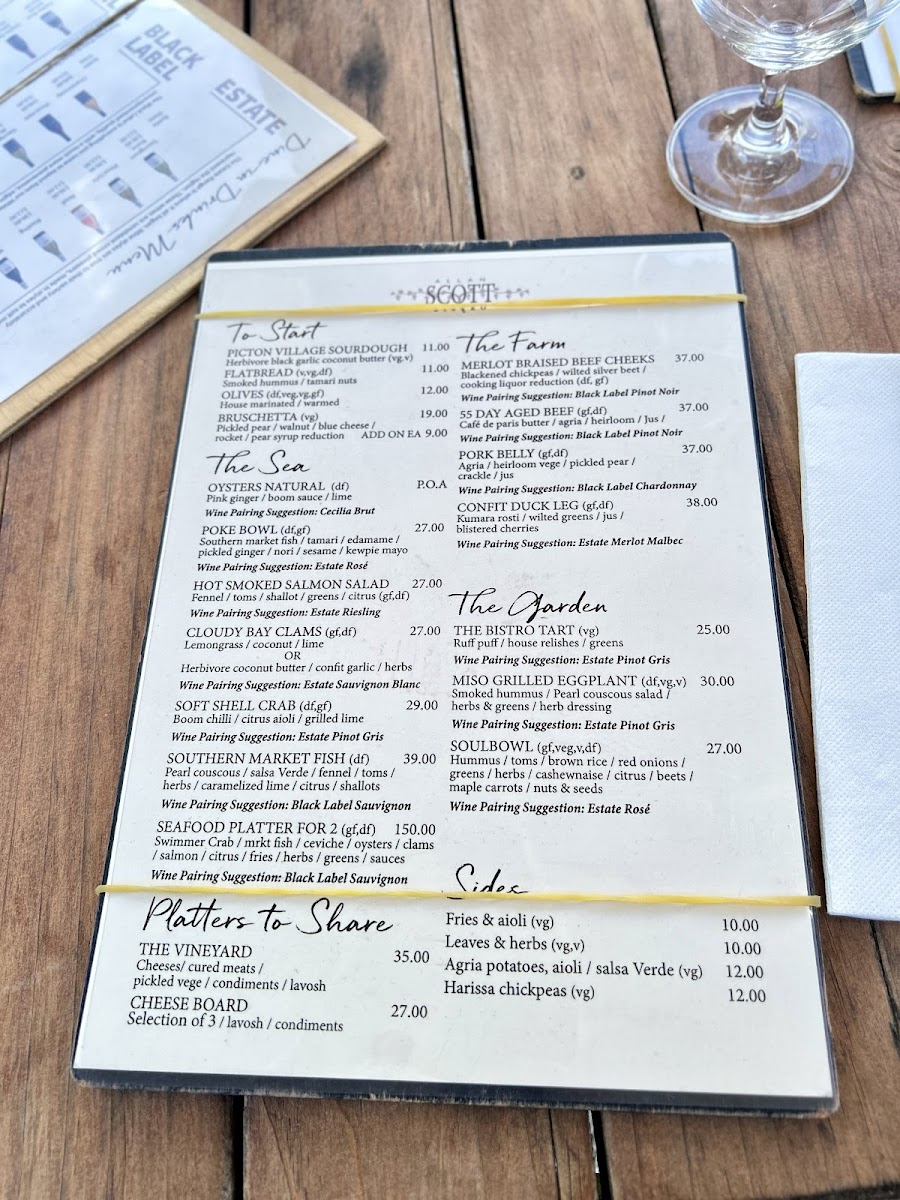 BLACK
LABEL
ESTATE
Dine in Drinks Menu
ALLAN
SCOTT
To Start
PICTON VILLAGE SOURDOUGH 11.00
Herbivore black garlic coconut butter (vg.v)
FLATBREAD (v,vg,df) 11.00
Smoked hummus / tamari nuts
OLIVES (df,veg,vg,gf) 12.00
House marinated / warmed
BRUSCHETTA (vg) 19.00
Pickled pear / walnut / blue cheese /
rocket / pear syrup reduction ADD ON EA 9.00
The Sea
OYSTERS NATURAL (df) P.O.A
Pink ginger / boom sauce / lime
Wine Pairing Suggestion: Cecilia Brut
POKE BOWL (df,gf) 27.00
Southern market fish / tamari / edamame /
pickled ginger / nori / sesame / kewpie mayo
Wine Pairing Suggestion: Estate Rosé
HOT SMOKED SALMON SALAD 27.00
Fennel / toms / shallot / greens / citrus (gf,df)
Wine Pairing Suggestion: Estate Riesling
CLOUDY BAY CLAMS (gf,df) 27.00
Lemongrass / coconut / lime
OR
Herbivore coconut butter / confit garlic / herbs
Wine Pairing Suggestion: Estate Sauvignon Blanc
SOFT SHELL CRAB (df,gf) 29.00
Boom chilli / citrus aioli / grilled lime
Wine Pairing Suggestion: Estate Pinot Gris
SOUTHERN MARKET FISH (df) 39.00
Pearl couscous / salsa Verde / fennel / toms /
herbs / caramelized lime / citrus / shallots
Wine Pairing Suggestion: Black Label Sauvignon
SEAFOOD PLATTER FOR 2 (gf,df) 150.00
Swimmer Crab / mrkt fish / ceviche / oysters / clams
/ salmon / citrus / fries / herbs / greens / sauces
Wine Pairing Suggestion: Black Label Sauvignon
Platters to Share
THE VINEYARD 35.00
Cheeses/ cured meats /
pickled vege / condiments / lavosh
CHEESE BOARD 27.00
Selection of 3 / lavosh / condiments
The Farm
MERLOT BRAISED BEEF CHEEKS 37.00
Blackened chickpeas / wilted silver beet /
cooking liquor reduction (df, gf)
Wine Pairing Suggestion: Black Label Pinot Noir
55 DAY AGED BEEF (gf,df) 37.00
Café de paris butter / agria / heirloom / Jus /
Wine Pairing Suggestion: Black Label Pinot Noir
PORK BELLY (gf,df) 37.00
Agria / heirloom vege / pickled pear /
crackle / jus
Wine Pairing Suggestion: Black Label Chardonnay
CONFIT DUCK LEG (gf,df) 38.00
Kumara rosti / wilted greens / jus /
blistered cherries
Wine Pairing Suggestion: Estate Merlot Malbec
The Garden
THE BISTRO TART (vg) 25.00
Ruff puff / house relishes / greens
Wine Pairing Suggestion: Estate Pinot Gris
MISO GRILLED EGGPLANT (df,vg,v) 30.00
Smoked hummus / Pearl couscous salad /
herbs & greens / herb dressing
Wine Pairing Suggestion: Estate Pinot Gris
SOULBOWL (gf,veg,v,df) 27.00
Hummus / toms / brown rice / red onions /
greens / herbs / cashewnaise / citrus / beets /
maple carrots / nuts & seeds
Wine Pairing Suggestion: Estate Rosé
Sides
Fries & aioli (vg) 10.00
Leaves & herbs (vg,v) 10.00
Agria potatoes, aioli / salsa Verde (vg) 12.00
Harissa chickpeas (vg) 12.00